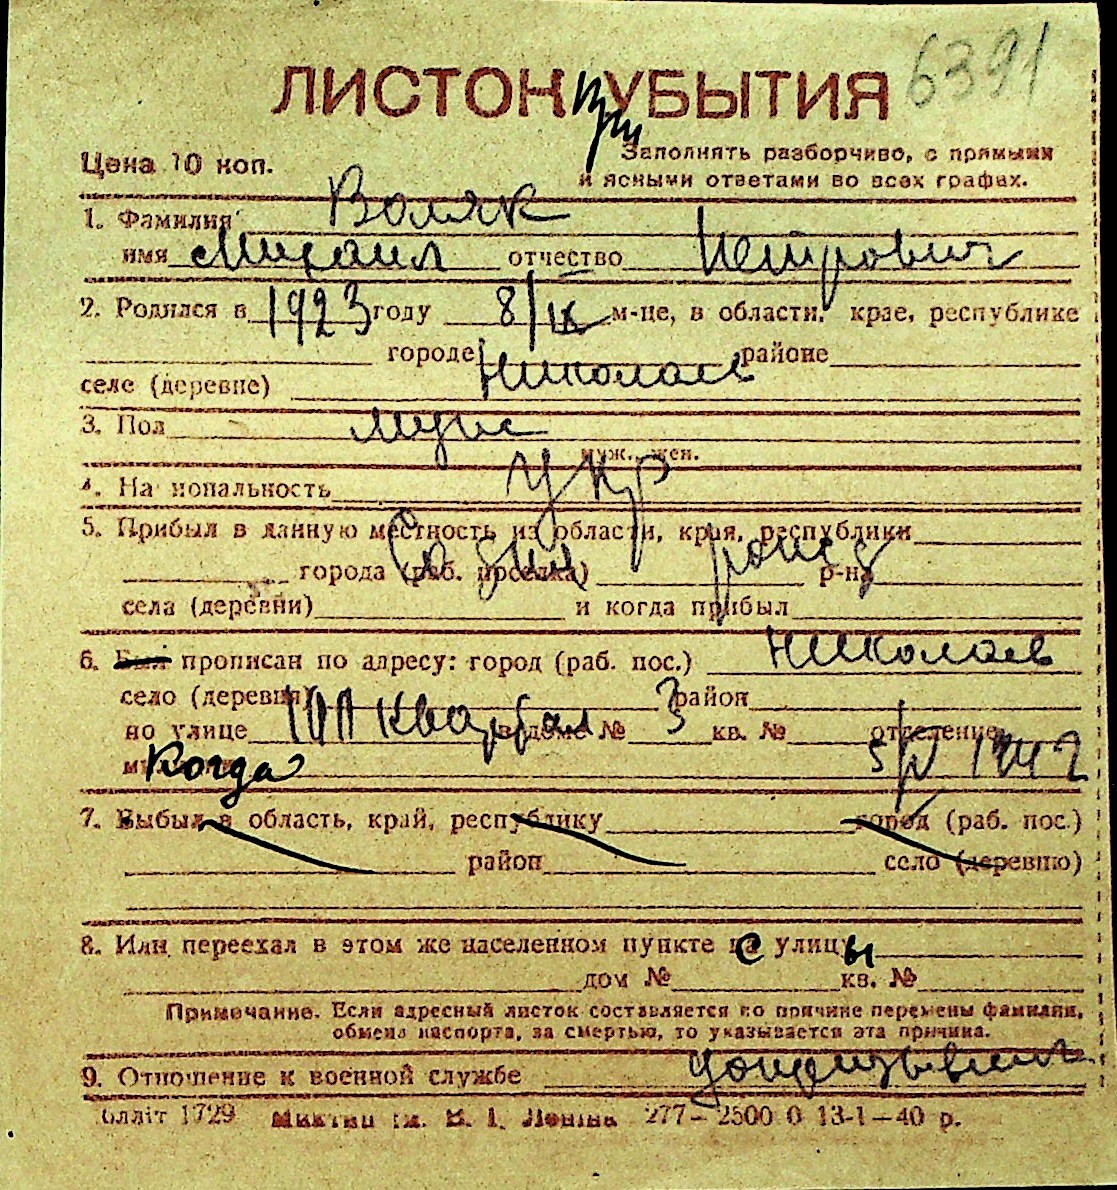 6391
ЛИСТОК при УБЫТИЯ
Цена 10 коп. Заполнять разборчиво, с прямыми
и ясными ответами во всех графах.
1. Фамилия Воляк
имя Михаил отчество Петрович
2. Родился в 1923 году 8/IX м-це, в области, крае, республике
городе Николаев районе
селе (деревне)
3. Пол муж
муж., жен.
4. Национальность Укр
5. Прибыл в данную местность из области, края, республики
города (раб. поселка) р-на
села (деревни) и когда прибыл
6. Был прописан по адресу: город (раб. пос.) Николаев
село (деревня) район
по улице квартал в доме № 3 кв. № отделение
Когда 5/IV 1942
7. Выбыл в область, край, республику город (раб. пос.)
район село (деревню)
8. Или переехал в этом же населенном пункте с улицы
дом № кв. №
Примечание. Если адресный листок составляется по причине перемены фамилии,
обмена паспорта, за смертью, то указывается эта причина.
9. Отношение к военной службе
облліт 1729 В. І. Леніна 277–2500 0 13-1–40 р.